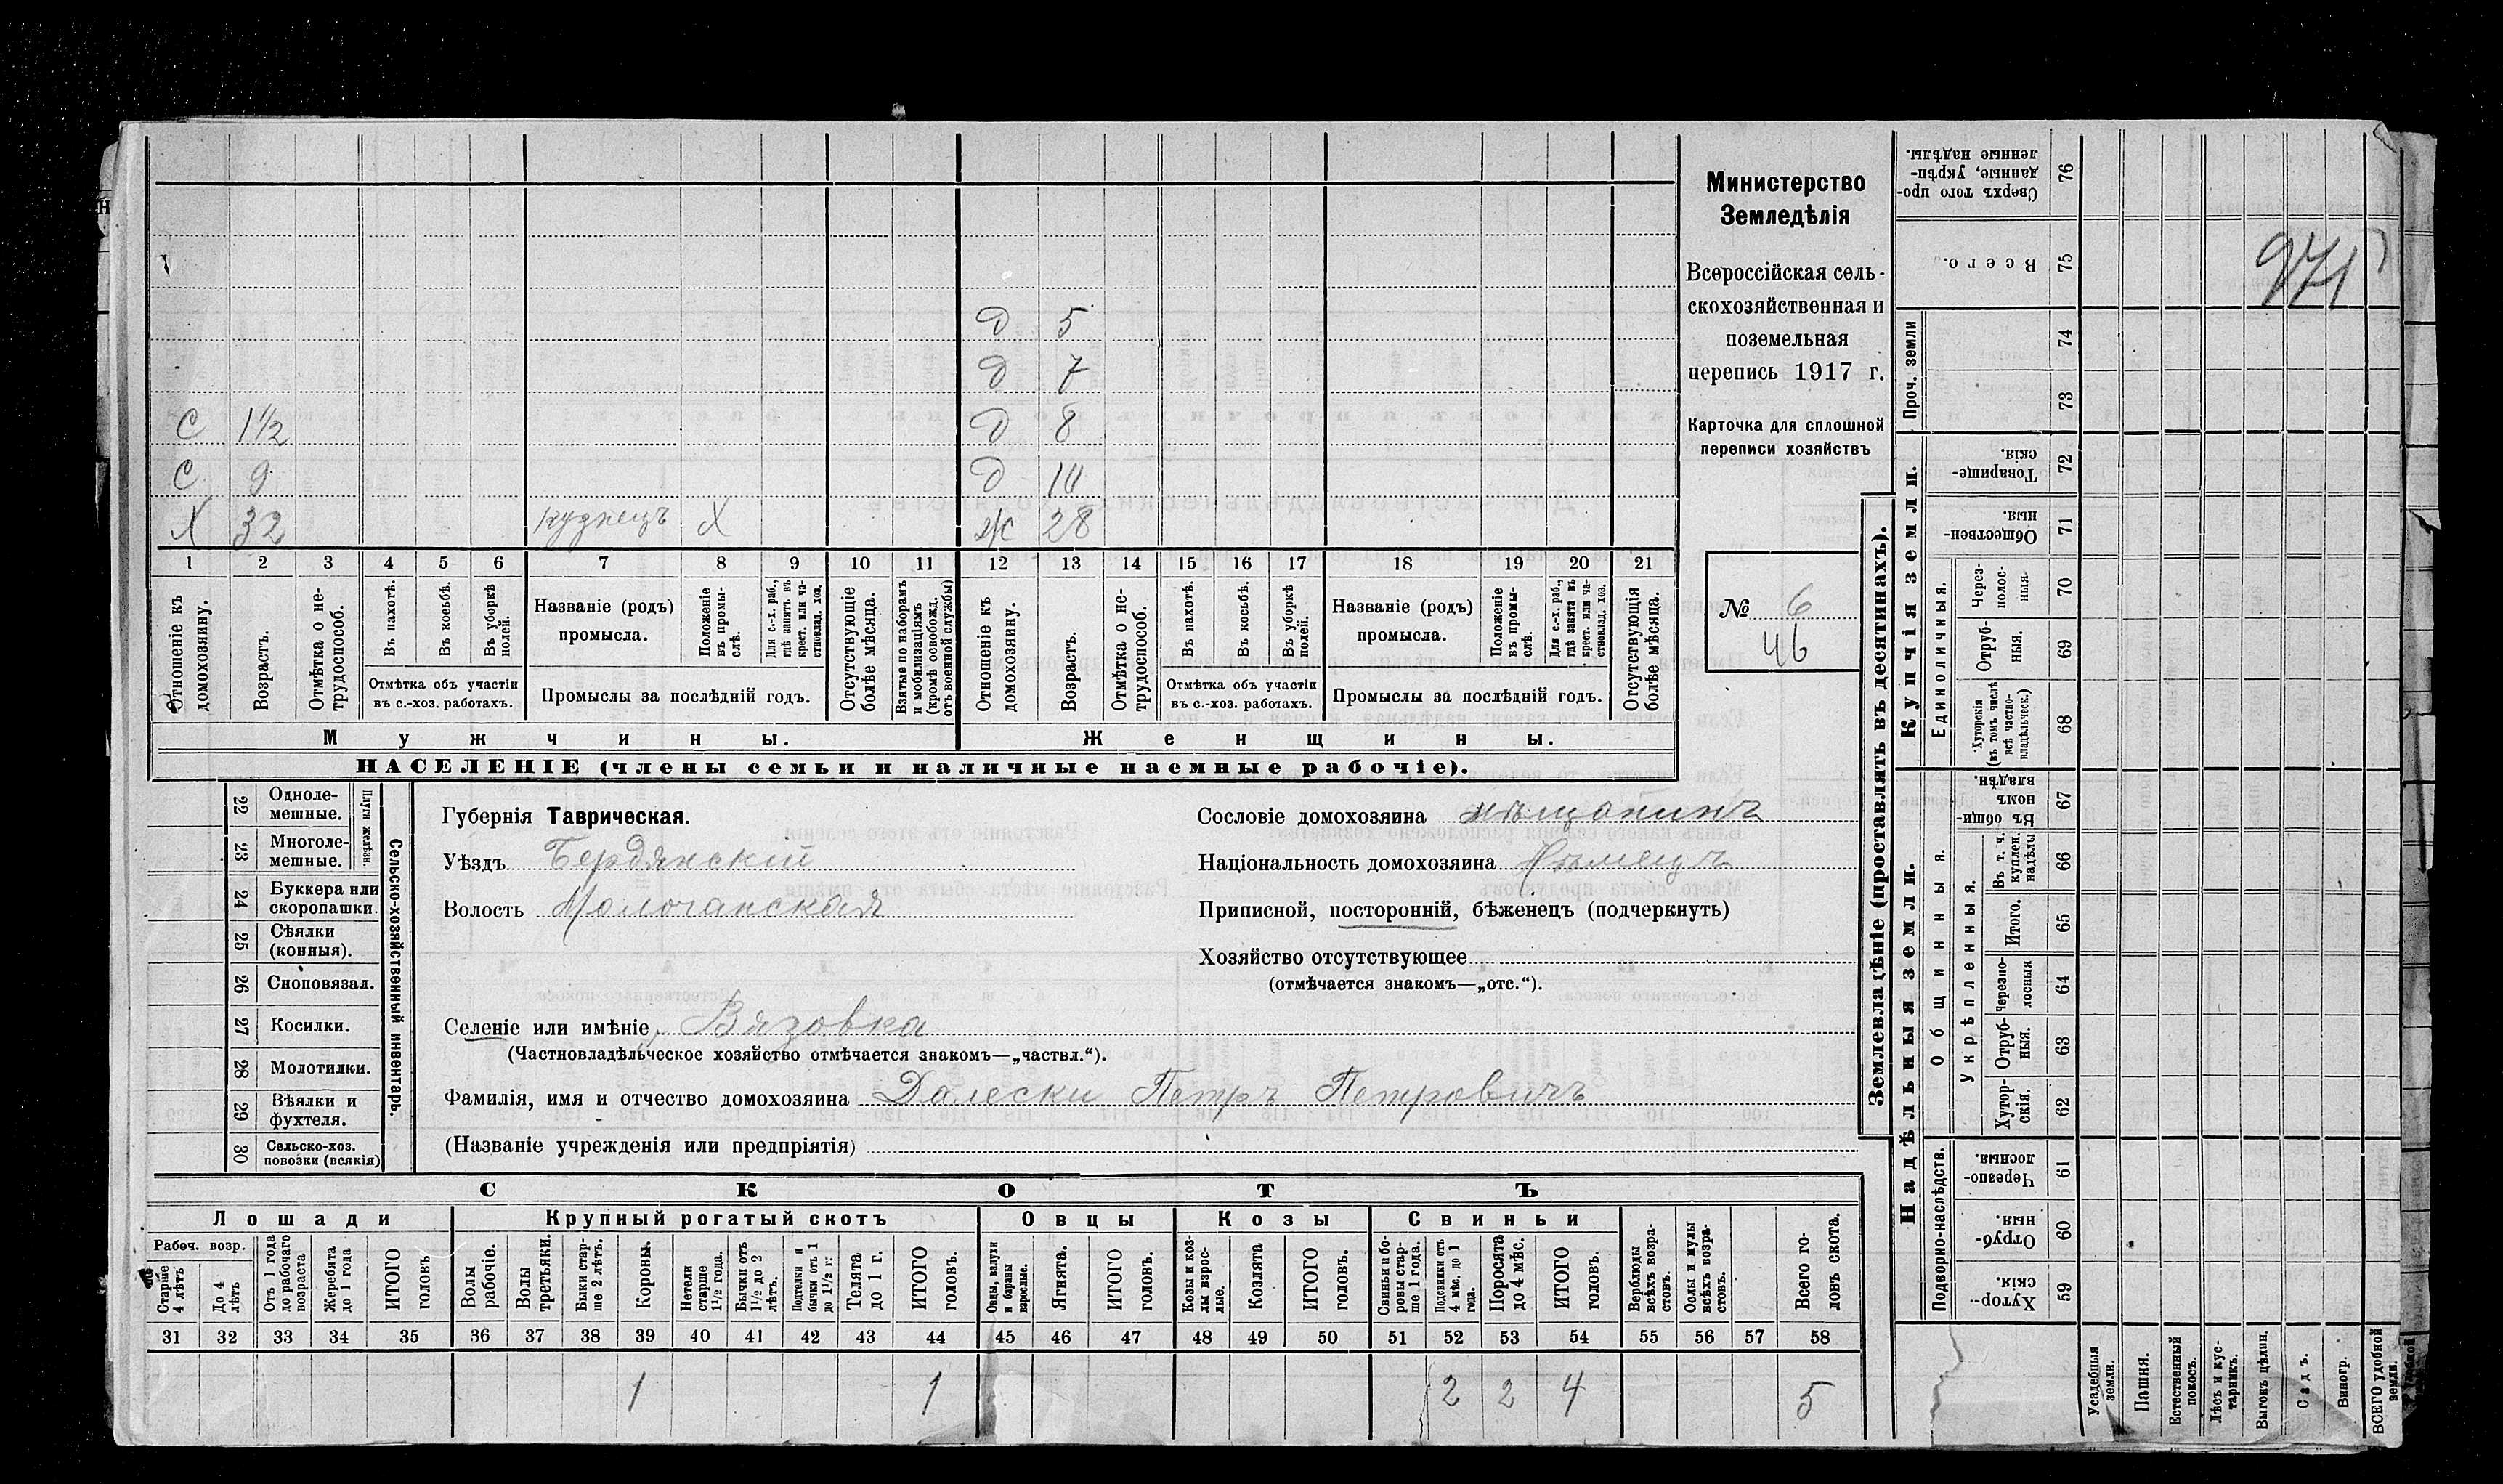 Министерство
Земледѣлія
Всероссійская сель-
скохозяйственная и
поземельная
перепись 1917 г.
Карточка для сплошной
переписи хозяйствъ
№ 6
46
Д 5
Д 7
С 1½ Д 8
С 9 Д 10
Х 32 кузнецъ Х Ж 28
1 2 3 4 5 6 7 8 9 10 11 12 13 14 15 16 17 18 19 20 21
Отношеніе къ домохозяину.
Возрастъ.
Отмѣтка о не-трудоспособ.
Въ пахотѣ.
Въ косьбѣ.
Въ уборкѣ полей.
Отмѣтка объ участіи
въ с.-хоз. работахъ.
Названіе (родъ)
промысла.
Положеніе въ промы-слѣ.
Для с.-х. раб., гдѣ занятъ въ крест. или ча-стновлад. хоз.
Промыслы за послѣдній годъ.
Отсутствующіе болѣе мѣсяца.
Взятые по наборамъ и мобилизаціямъ (кромѣ освобожд. отъ военной службы)
Отношеніе къ домохозяину.
Возрастъ.
Отмѣтка о не-трудоспособ.
Въ пахотѣ.
Въ косьбѣ.
Въ уборкѣ полей.
Отмѣтка объ участіи
въ с.-хоз. работахъ.
Названіе (родъ)
промысла.
Положеніе въ промы-слѣ.
Для с.-х. раб., гдѣ занята въ крест. или ча-стновлад. хоз.
Промыслы за послѣдній годъ.
Отсутствующія болѣе мѣсяца.
Мужчины. Женщины.
НАСЕЛЕНІЕ (члены семьи и наличные наемные рабочіе).
22 Одноле-мешные.
23 Многоле-мешные.
Плуги желѣзн.
24 Буккера или скоропашки.
25 Сѣялки (конныя).
26 Сноповязал.
27 Косилки.
28 Молотилки.
29 Вѣялки и фухтеля.
30 Сельско-хоз. повозки (всякія)
Сельско-хозяйственный инвентарь.
Губернія Таврическая.
Уѣздъ Бердянскій
Волость Молочанская
Селеніе или имѣніе Вязовка
(Частновладѣльческое хозяйство отмѣчается знакомъ—„частвл.“).
Фамилія, имя и отчество домохозяина Далески Петръ Петровичъ
(Названіе учрежденія или предпріятія)
Сословіе домохозяина мѣщанинъ
Національность домохозяина Нѣмецъ
Приписной, посторонній, бѣженецъ (подчеркнуть)
Хозяйство отсутствующее
(отмѣчается знакомъ—„отс.“).
СКОТЪ
Лошади Крупный рогатый скотъ Овцы Козы Свиньи
Рабоч. возр.
Старше 4 лѣтъ
До 4 лѣтъ
Отъ 1 года до рабочаго возраста
Жеребята до 1 года
ИТОГО головъ
Волы рабочіе.
Волы третьяки.
Быки стар-ше 2 лѣтъ.
Коровы.
Нетели старше 1½ года.
Бычки отъ 1½ до 2 лѣтъ.
Подтелки и бычки отъ 1 до 1½ г.
Телята до 1 г.
ИТОГО головъ.
Овцы, валухи и бараны взрослые.
Ягнята.
ИТОГО головъ.
Козы и коз-лы взрос-лые.
Козлята
ИТОГО головъ.
Свиньи и бо-ровы стар-ше 1 года.
Подсвинки отъ 4 мѣс. до 1 года.
Поросята до 4 мѣс.
ИТОГО головъ.
Верблюды всѣхъ возра-стовъ.
Ослы и мулы всѣхъ возра-стовъ.
Всего го-ловъ скота.
31 32 33 34 35 36 37 38 39 40 41 42 43 44 45 46 47 48 49 50 51 52 53 54 55 56 57 58
1 1 2 2 4 5
Землевладѣніе (проставлять въ десятинахъ).
Надѣльныя земли. Купчія земли. Проч. земли
Сверхъ того про-данные, укрѣп-ленные надѣлы. 76
Всего. 75
971
74
73
Товарище-скія. 72
Обществен-ныя. 71
Единоличныя.
Через-полос-ныя. 70
Отруб-ныя. 69
Хуторскія (въ томъ числѣ всѣ частно-владѣльческ.) 68
Общинныя.
Въ общин-номъ владѣн. 67
Укрѣпленныя.
Въ т. ч. куплен. надѣлы 66
Итого. 65
Черезпо-лосныя 64
Отруб-ныя. 63
Хутор-скія. 62
Подворно-наслѣдств.
Черезпо-лосныя. 61
Отруб-ныя. 60
Хутор-скія. 59
Усадебныя земли.
Пашня.
Естественный покосъ.
Лѣсъ и кус-тарникъ.
Выгонъ цѣлин.
Садъ.
Виногр.
ВСЕГО удобной земли.